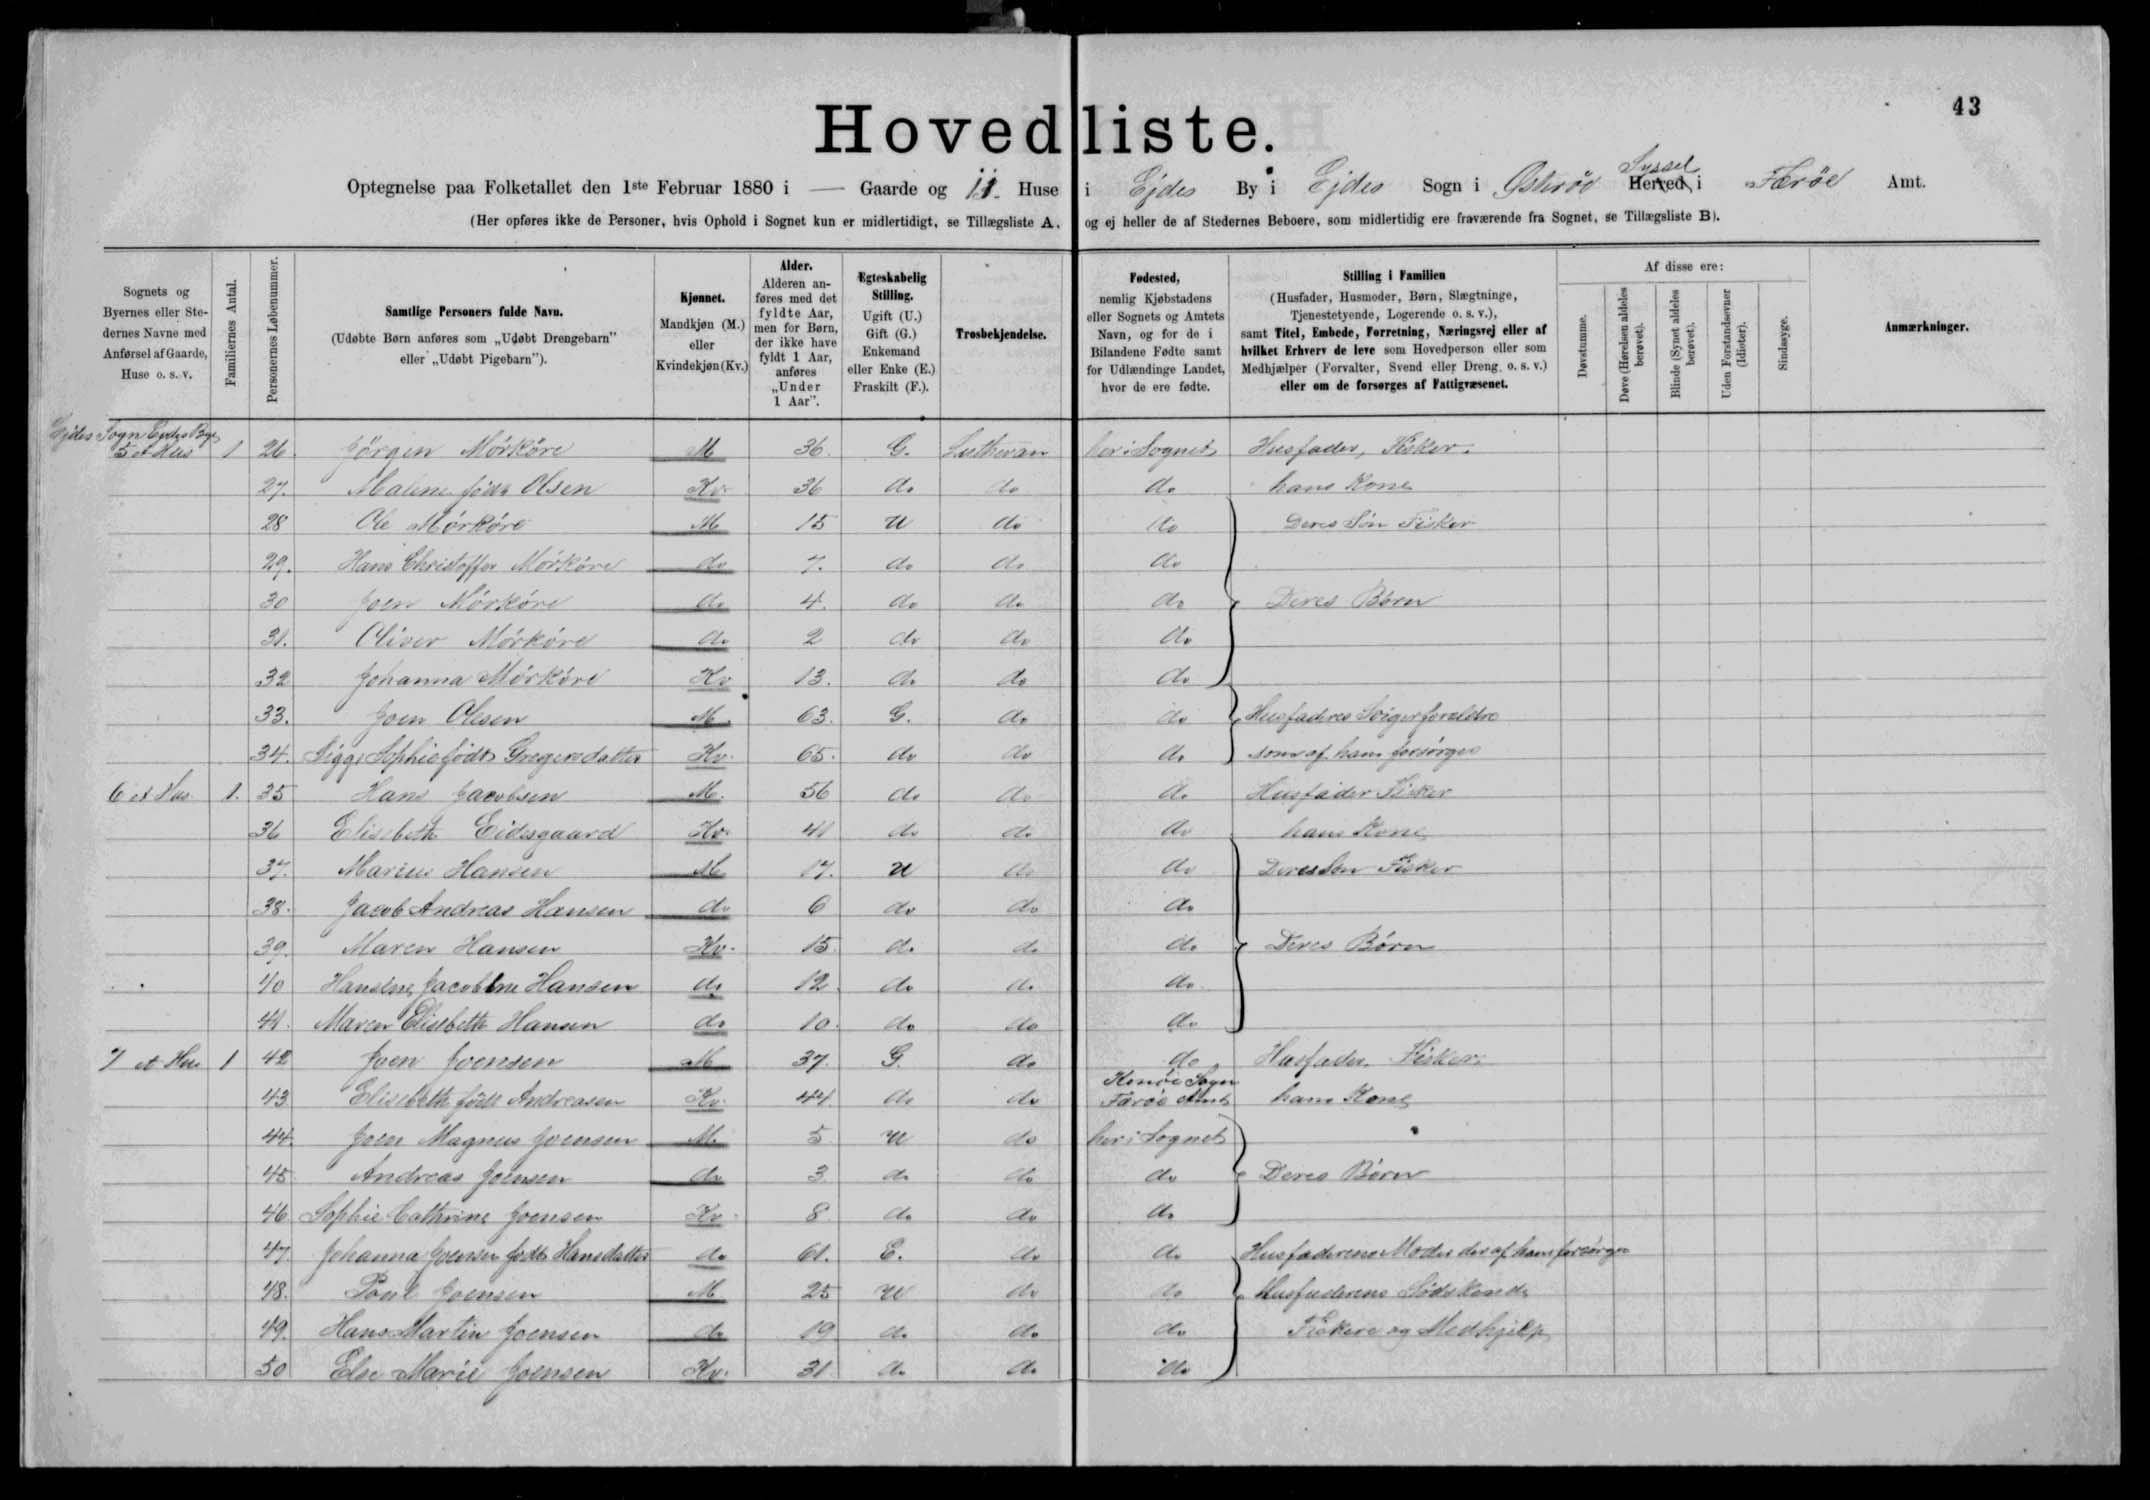 43
Hovedliste.
Optegnelse paa Folketallet den 1ste Februar 1880 i — Gaarde og 11. Huse i Ejdes By i Ejdes Sogn i Østerøe Herred, Syssel i Færöe Amt.
(Her opføres ikke de Personer, hvis Ophold i Sognet kun er midlertidigt, se Tillægsliste A. og ej heller de af Stedernes Beboere, som midlertidig ere fraværende fra Sognet, se Tillægsliste B).
Sognets og Byernes eller Stedernes Navne med Anførsel af Gaarde, Huse o. s. v.
Familiernes Antal.
Personernes Løbenummer.
Samtlige Personers fulde Navn. (Udøbte Børn anføres som „Udøbt Drengebarn" eller „Udøbt Pigebarn").
Kjønnet. Mandkjøn (M.) eller Kvindekjøn (Kv.)
Alder. Alderen anføres med det fyldte Aar, men for Børn, der ikke have fyldt 1 Aar, anføres „Under 1 Aar".
Ægteskabelig Stilling. Ugift (U.) Gift (G.) Enkemand eller Enke (E.) Fraskilt (F.).
Trosbekjendelse.
Fødested, nemlig Kjøbstadens eller Sognets og Amtets Navn, og for de i Bilandene Fødte samt for Udlændinge Landet, hvor de ere fødte.
Stilling i Familien (Husfader, Husmoder, Børn, Slægtninge, Tjenestetyende, Logerende o. s. v.), samt Titel, Embede, Forretning, Næringsvej eller af hvilket Erhverv de leve som Hovedperson eller som Medhjælper (Forvalter, Svend eller Dreng o. s. v.) eller om de forsørges af Fattigvæsenet.
Af disse ere:
Døvstumme.
Døve (Hørelsen aldeles berøvet).
Blinde (Synet aldeles berøvet).
Uden Forstandsevner (Idioter).
Sindssyge.
Anmærkninger.
Ejdes Sogn Ejdes Bye
5 et Hus 1 26. Jörgen Mörköre M 36. G. Lutheran her i Sognet Husfader, Fisker.
27. Malene födt Olsen Kv. 36 do do do hans Kone
28 Ole Mörköre M 15 U do do Deres Sön Fisker
29. Hans Christoffer Mörköre do 7. do do do
30 Joen Mörköre do 4. do do do Deres Börn
31. Oliver Mörköre do 2 do do do
32 Johanna Mörköre Kv 13. do do do
33. Joen Olesen M. 63. G. do do Husfaderes Svigerforældre
34. Sigge Sophie födt Gregersdatter Kv. 65. do do do som af ham forsörges
6 et Hus. 1. 35 Hans Jacobsen M. 56 do do do Husfader Fisker
36 Elisebeth Eidesgaard Kv. 41 do do do hans Kone
37. Marius Hansen M 17. U do do Deres Sön Fisker
38. Jacob Andreas Hansen do 6 do do do
39. Maren Hansen Kv. 15. do do do Deres Börn
40 Hansine Jacobine Hansen do 12 do do do
41. Maren Elisebeth Hansen do 10. do do do
7 et Hus 1 42 Joen Joensen M 37. G. do do Husfader. Fisker.
43 Elisebeth födt Andreasen Kv. 44. do do Konöe Sogn Færöe Amt hans Kone
44. Joen Magnus Joensen M. 5 U do her i Sognet
45 Andreas Joensen do 3 do do do Deres Börn
46 Sophie Cathrine Joensen Kv. 8 do do do
47. Johanna Joensen födt Hansdatter do 61. E. do do Husfaderens Moder der af ham forsörges
48. Poul Joensen M 25 U do do Husfaderens Södskende
49. Hans Martin Joensen do 19 do do do Fiskere og Medhjælp
50 Else Marie Joensen Kv. 31 do do do